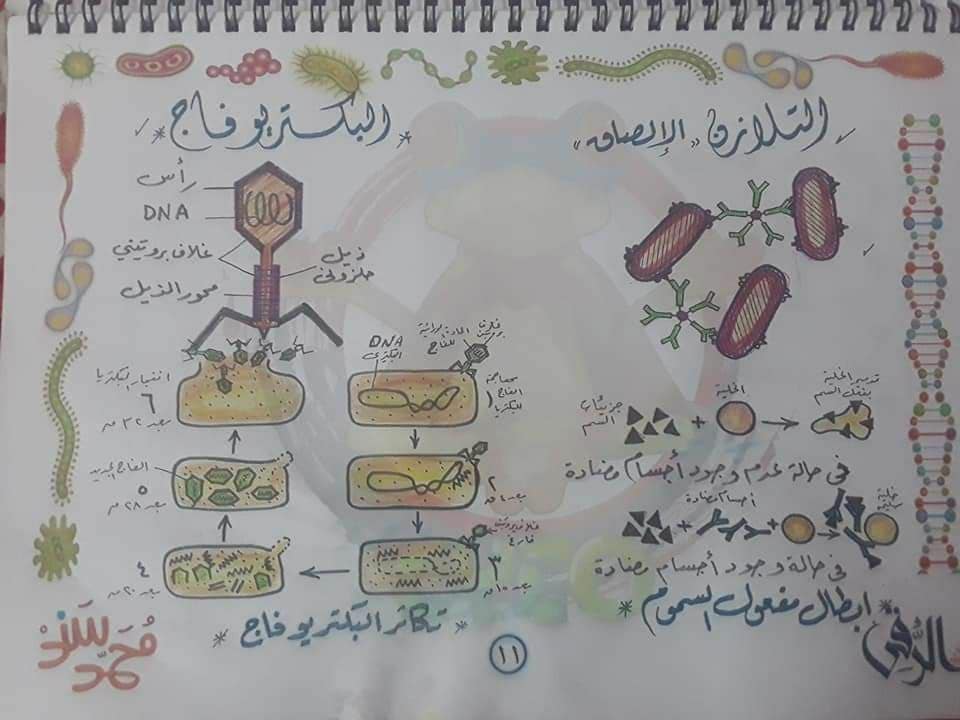 التلازن "الإلصاق"
في حالة عدم وجود أجسام مضادة
جزيئات السم
+
الخلية
تدمير الخلية
بفعل السم
+
أجسام مضادة
+
في حالة وجود أجسام مضادة
* ابطال مفعول السموم *
* البكتريوفاج *
رأس
DNA
غلاف بروتيني
ذيل
حلزوني
محور الذيل
DNA
البكتيري
مهاجمة
الفاج
للبكتريا
١
٢
غلاف بروتيني
فارغ
٣
بعد ١٠ ق
٤
بعد ٢٠ ق
الفاج الجديد
٥
بعد ٢٨ ق
انفجار البكتريا
٦
بعد ٣٢ ق
* تكاثر البكتريوفاج *
١١
محمد سند